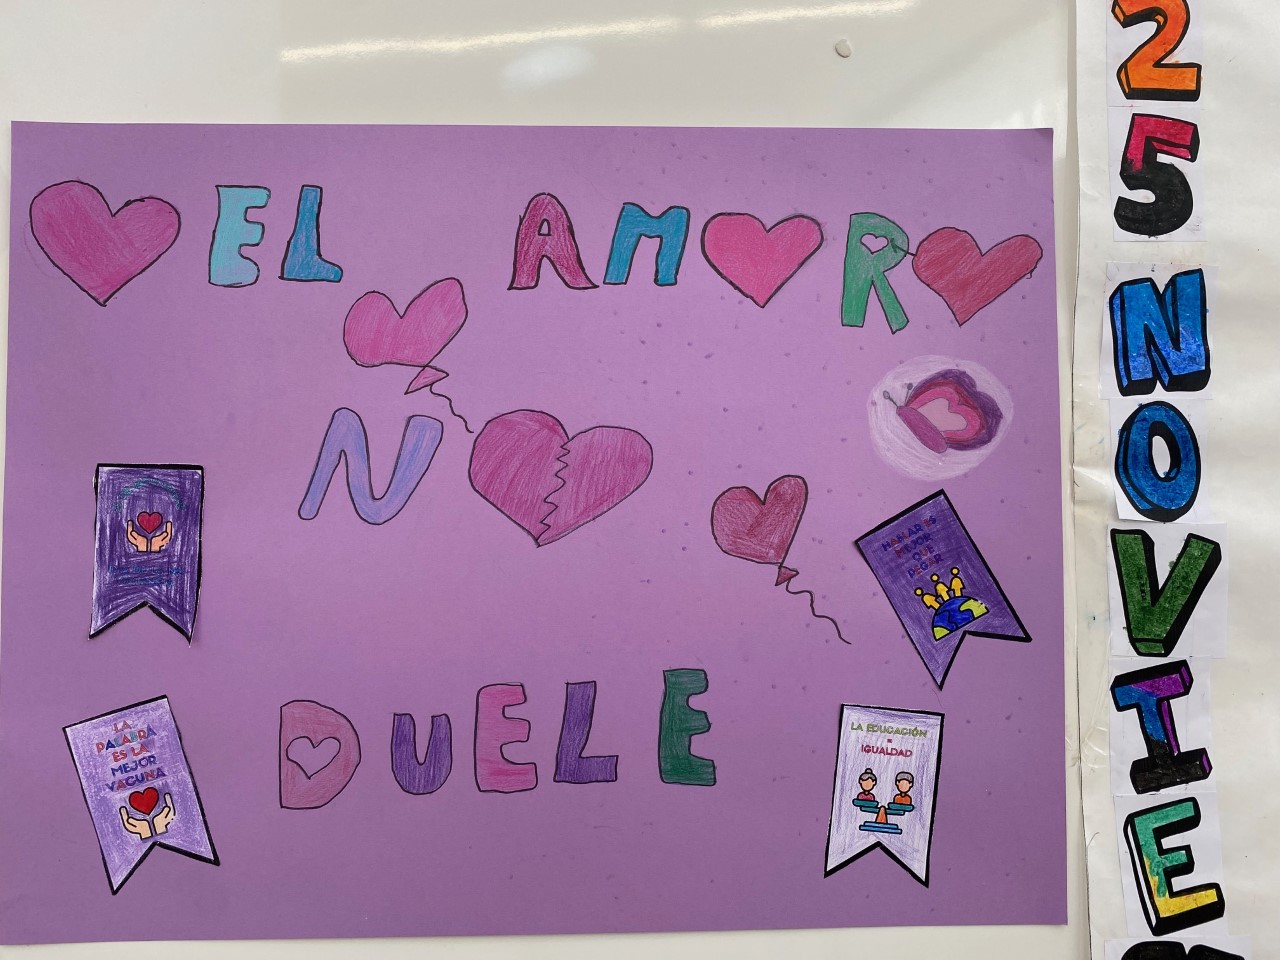 EL AMOR
NO
DUELE
HABLAR ES
MEJOR
QUE
PEGAR
LA
PALABRA
ES LA
MEJOR
VACUNA
LA EDUCACIÓN
=
IGUALDAD
25
NOVIE